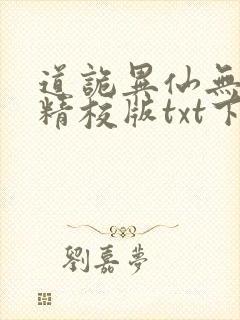 道詭異仙無
精校版txt下
劉嘉夢